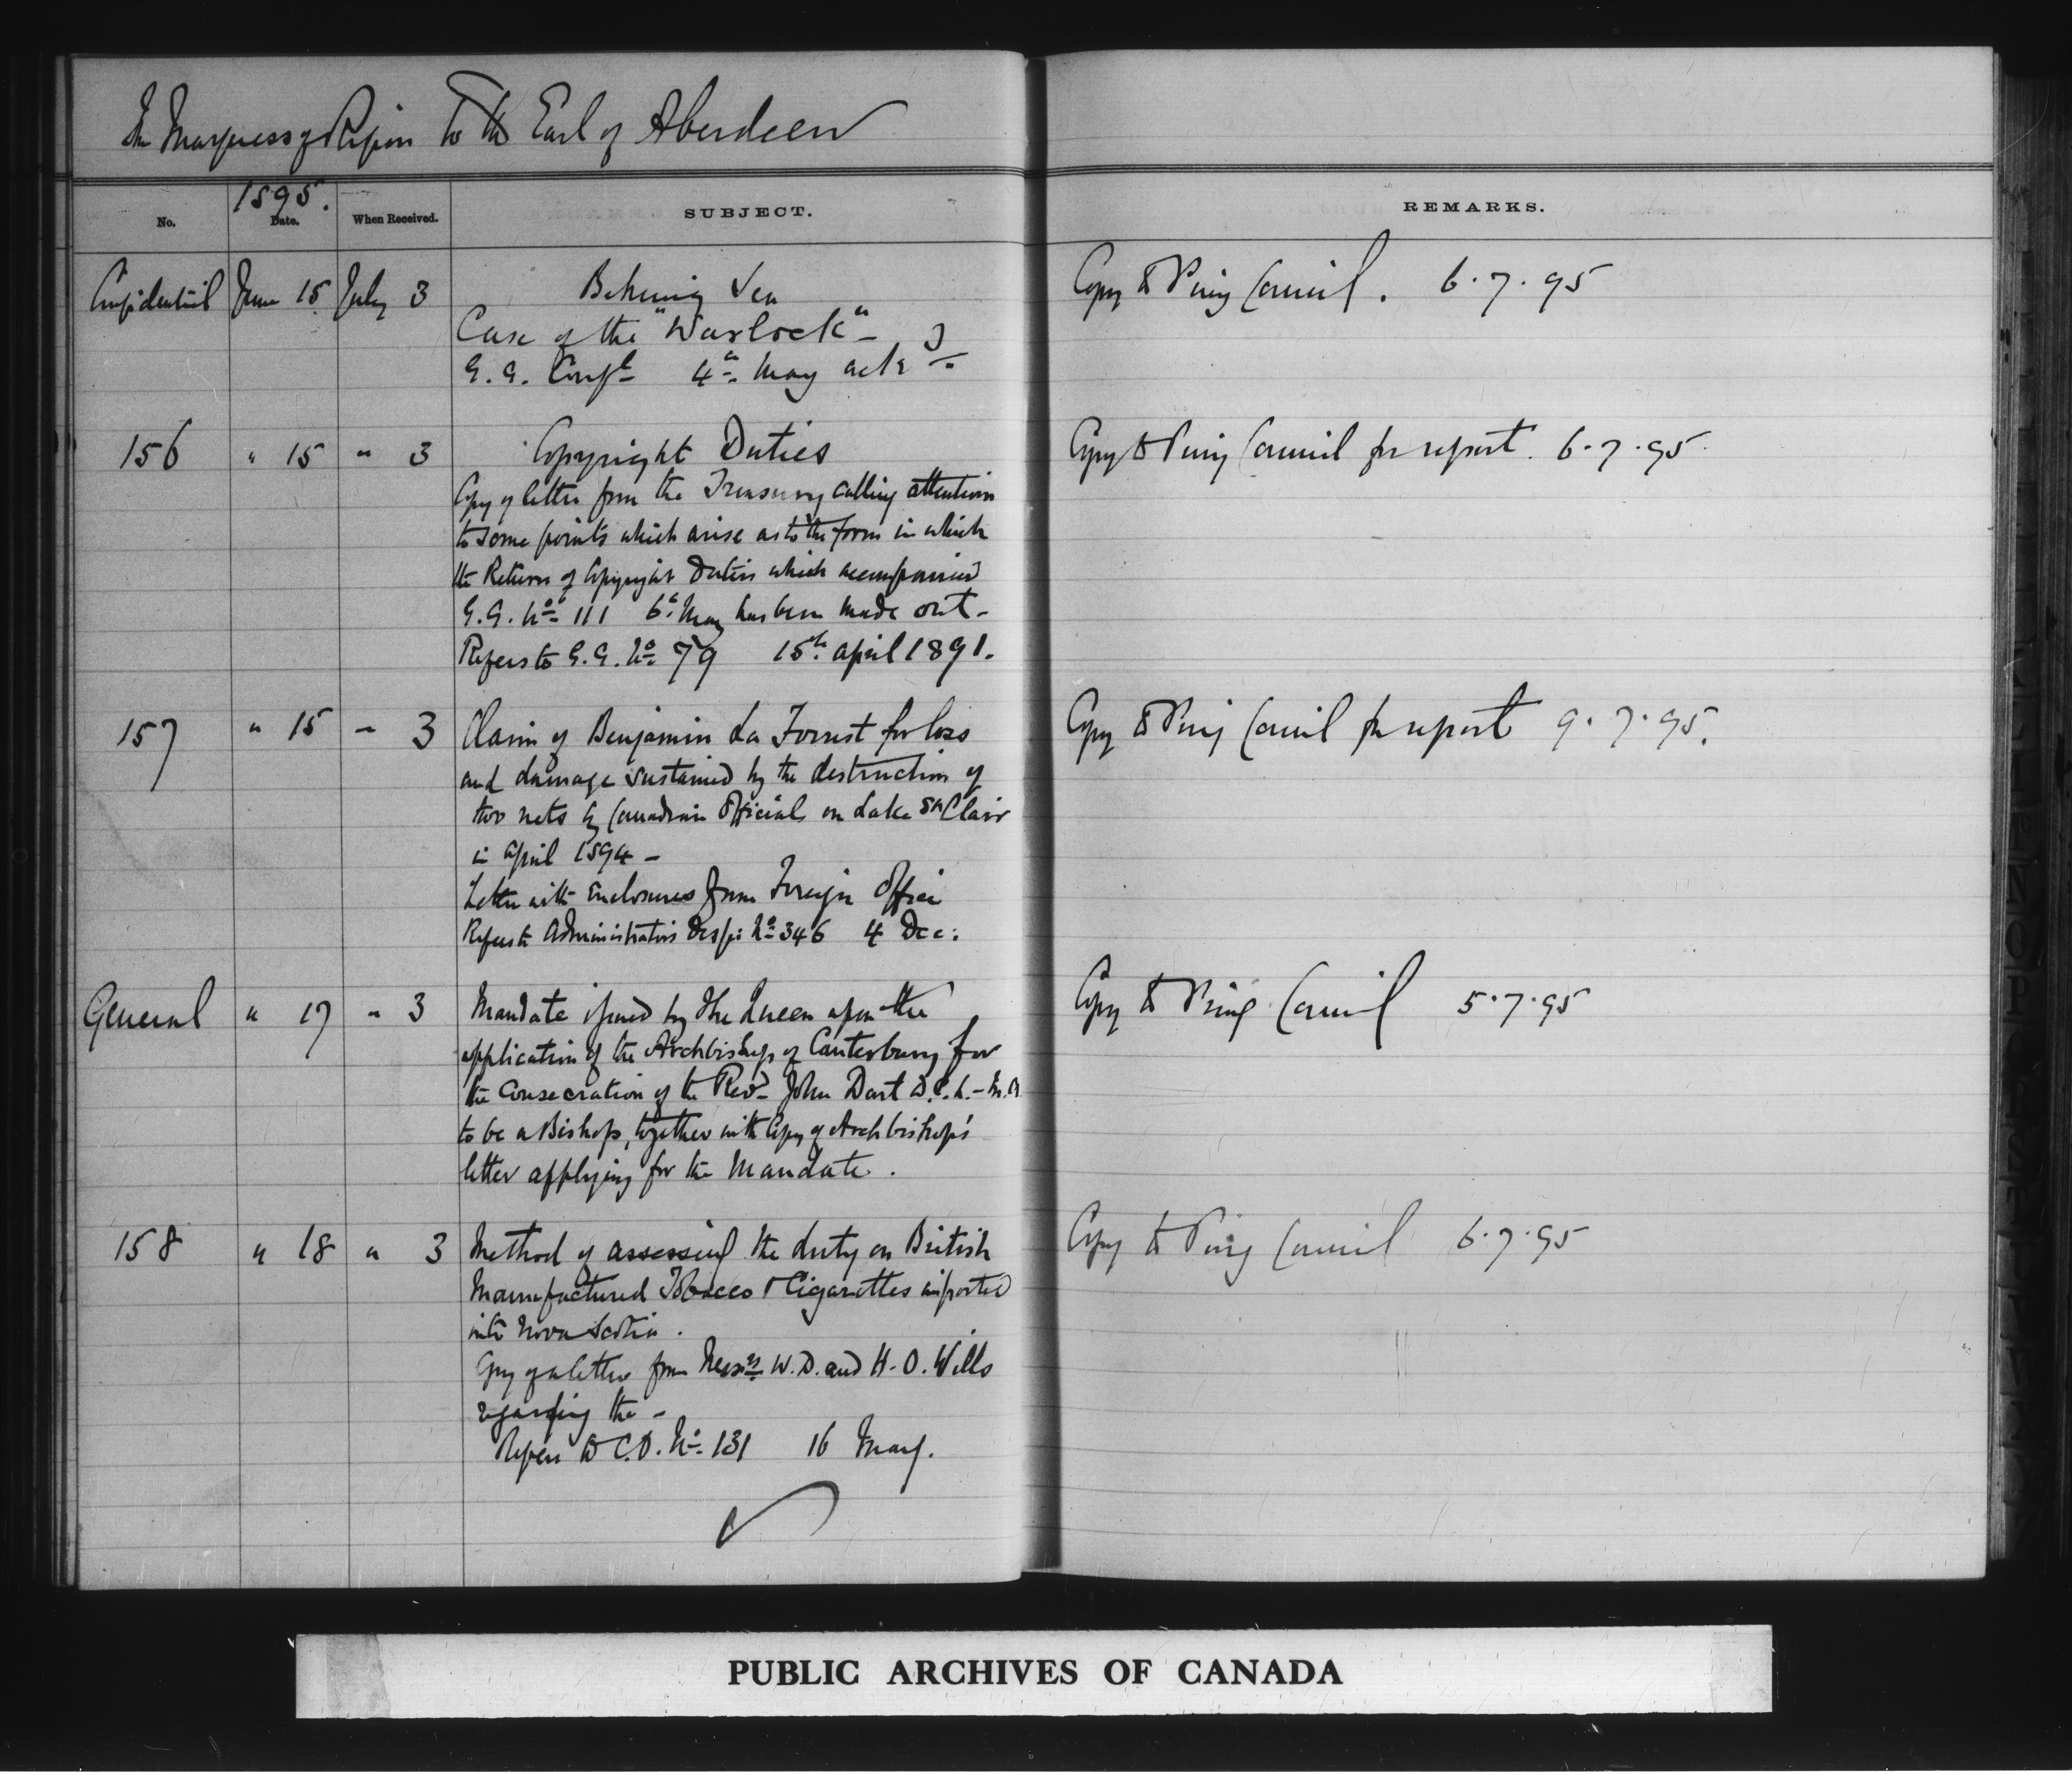 The Marquess of Ripon to the Earl of Aberdeen
1895.
No. Date. When Received. SUBJECT. REMARKS.
Confidential June 15 July 3 Behring Sea Copy to Privy Council. 6.7.95
Case of the "Warlock" -
G.G. Confl 4th May ack d
156 " 15 " 3 Copyright Duties Copy to Privy Council for report. 6.7.95
Copy of letter from the Treasury calling attention
to some points which arise as to the form in which
the Return of Copyright Duties which accompanied
G.G. No 111 6th May has been made out -
Refers to G.G. No 79 15th April 1891.
157 " 15 " 3 Claim of Benjamin La Forrest for loss Copy to Privy Council for report 9.7.95.
and damage sustained by the destruction of
two nets by Canadian Officials on Lake St Clair
in April 1894 -
Letter with Enclosures from Foreign Office
Refers to Administrators Desp: No 346 4 Dec:
General " 17 " 3 Mandate issued by the Queen upon the Copy to Privy Council 5.7.95
application of the Archbishop of Canterbury for
the consecration of the Revd John Dart D.C.L. - M.A.
to be a Bishop, together with Copy of Archbishop's
letter applying for the Mandate.
158 " 18 " 3 Method of assessing the duty on British Copy to Privy Council 6.7.95
Manufactured Tobacco & Cigarettes imported
into Nova Scotia.
Copy of a letter from Messrs W.D. and H.O. Wills
regarding the -
Refers to C.O. No 131 16 May.
PUBLIC ARCHIVES OF CANADA